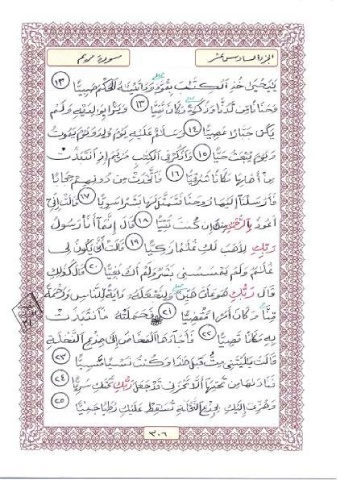 الجزء السادس عشر سورة مريم
يَٰيَحْيَىٰ خُذِ الْكِتَٰبَ بِقُوَّةٍ وَءَاتَيْنَٰهُ الْحُكْمَ صَبِيًّا ١٢
وَحَنَانًا مِّن لَّدُنَّا وَزَكَوٰةً وَكَانَ تَقِيًّا ١٣ وَبَرًّا بِوَٰلِدَيْهِ وَلَمْ
يَكُن جَبَّارًا عَصِيًّا ١٤ وَسَلَٰمٌ عَلَيْهِ يَوْمَ وُلِدَ وَيَوْمَ يَمُوتُ
وَيَوْمَ يُبْعَثُ حَيًّا ١٥ وَاذْكُرْ فِي الْكِتَٰبِ مَرْيَمَ إِذِ انتَبَذَتْ
مِنْ أَهْلِهَا مَكَانًا شَرْقِيًّا ١٦ فَاتَّخَذَتْ مِن دُونِهِمْ حِجَابًا
فَأَرْسَلْنَا إِلَيْهَا رُوحَنَا فَتَمَثَّلَ لَهَا بَشَرًا سَوِيًّا ١٧ قَالَتْ إِنِّي
أَعُوذُ بِالرَّحْمَٰنِ مِنكَ إِن كُنتَ تَقِيًّا ١٨ قَالَ إِنَّمَا أَنَا رَسُولُ
رَبِّكِ لِأَهَبَ لَكِ غُلَٰمًا زَكِيًّا ١٩ قَالَتْ أَنَّىٰ يَكُونُ لِي
غُلَٰمٌ وَلَمْ يَمْسَسْنِي بَشَرٌ وَلَمْ أَكُ بَغِيًّا ٢٠ قَالَ كَذَٰلِكِ
قَالَ رَبُّكِ هُوَ عَلَيَّ هَيِّنٌ وَلِنَجْعَلَهُ ءَايَةً لِّلنَّاسِ وَرَحْمَةً
مِّنَّا وَكَانَ أَمْرًا مَّقْضِيًّا ٢١ فَحَمَلَتْهُ فَانتَبَذَتْ
بِهِ مَكَانًا قَصِيًّا ٢٢ فَأَجَاءَهَا الْمَخَاضُ إِلَىٰ جِذْعِ النَّخْلَةِ
قَالَتْ يَٰلَيْتَنِي مِتُّ قَبْلَ هَٰذَا وَكُنتُ نَسْيًا مَّنسِيًّا ٢٣
فَنَادَىٰهَا مِن تَحْتِهَا أَلَّا تَحْزَنِي قَدْ جَعَلَ رَبُّكِ تَحْتَكِ سَرِيًّا ٢٤
وَهُزِّي إِلَيْكِ بِجِذْعِ النَّخْلَةِ تُسَٰقِطْ عَلَيْكِ رُطَبًا جَنِيًّا ٢٥
٣٠٦